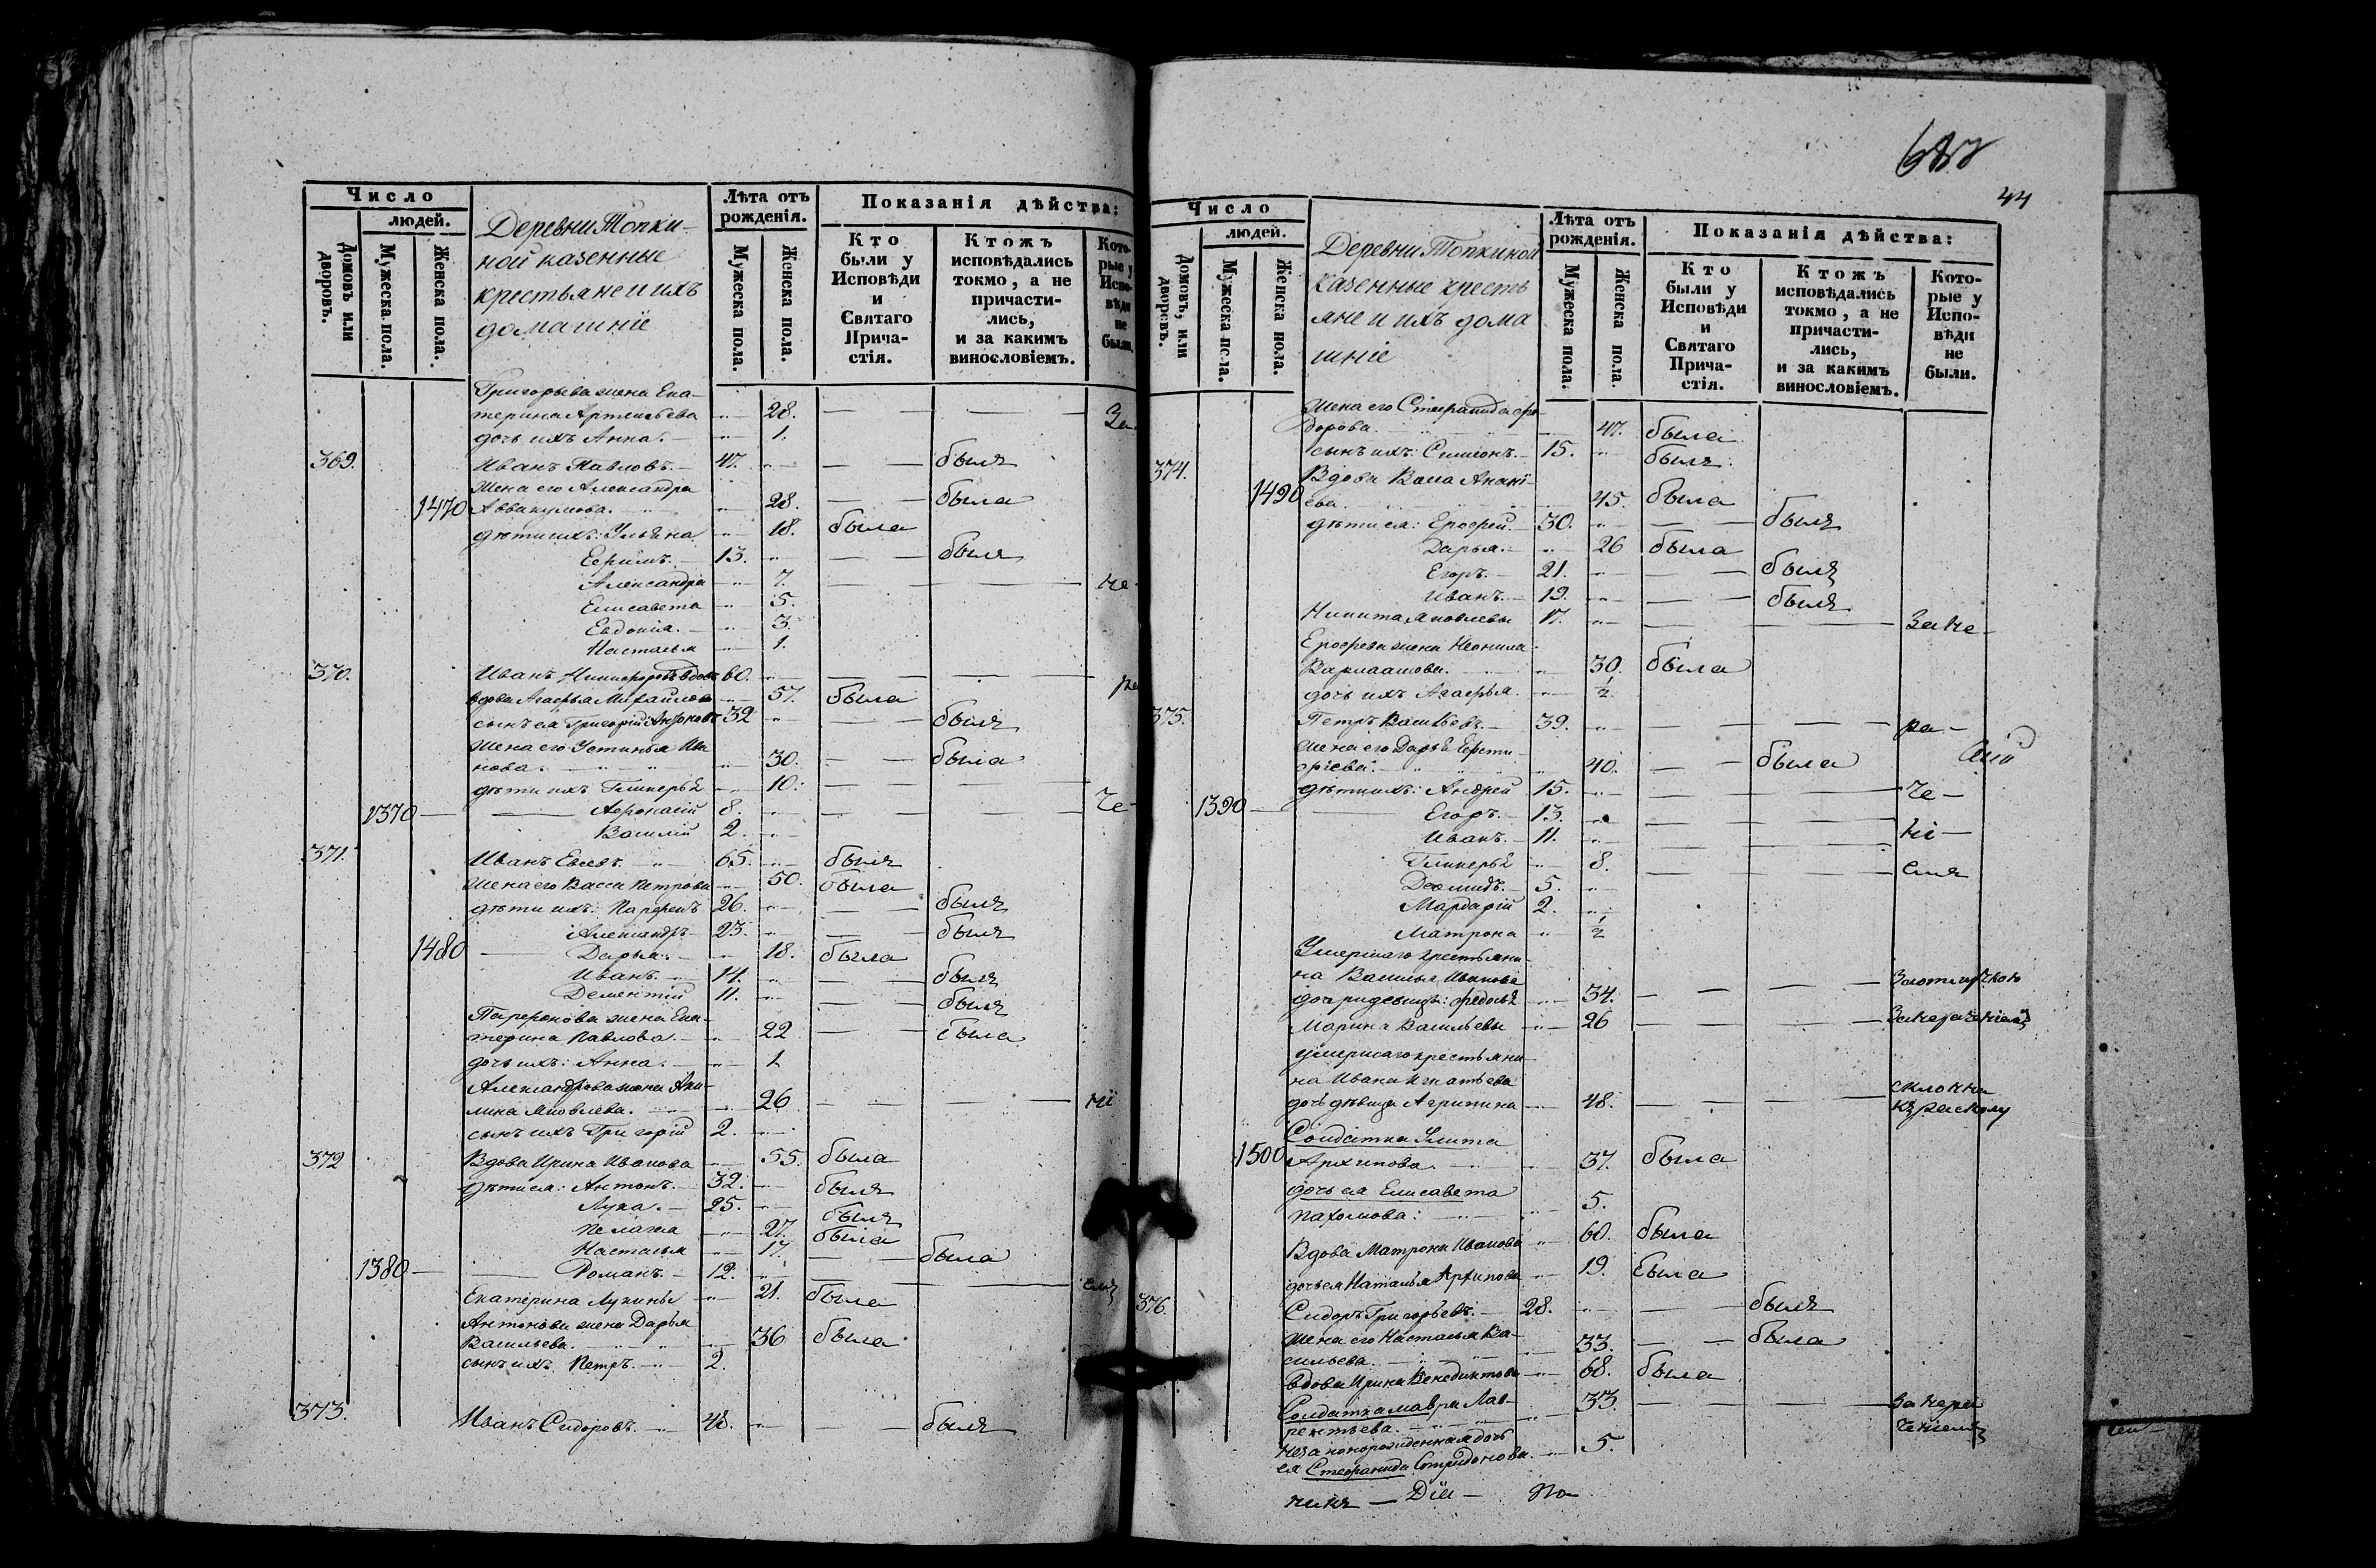 Число
людей.
Домовъ или дворовъ.
Мужеска пола.
Женска пола.
Деревни Топки-
ной казенные
крестьяне и ихъ
домашнiе
Лѣта отъ рожденiя.
Мужеска пола.
Женска пола.
Показанiя дѣйства:
Кто были у Исповѣди и Святаго Прича- стiя.
Ктожъ исповѣдались токмо, а не причасти- лись, и за какимъ винословiемъ.
Кото- рые у Испо- вѣди не были.
Григорьева жена Ека-
терина Артемьева — 28.
дочь ихъ Анна. — 1.
369. Иванъ Павловъ. — 47. — былъ
Жена его Александра
1470 Аввакумова. — 28. — была
дѣти ихъ: Ульяна — 18. была
Ефримъ. 13. — былъ
Александра — 7. — не-
Елисавета — 5.
Евдокiя. — 3.
Настасья — 1.
370. Иванъ Никифоровъ вдовъ 60. — ра
вдова Агафья Михайлова — 57. была
сынъ ея Григорiй Антоновъ 32 — былъ
Жена его Устинья Ива
нова. — 30. — была
дѣти ихъ Гликерья — 10.
1370 — Афронасiй 8. — че-
Василiй 2.
371. Иванъ Евсевъ. — 65. — былъ
Жена его Васса Петрова — 50. была
дѣти ихъ: Парфенъ 26. — былъ
Александръ 23. — былъ
1480 — Дарья. — 18. была
Иванъ. 14. — былъ
Дементiй 11. — былъ
Парфенова жена Ека-
терина Павлова. — 22 — была
дочь ихъ: Анна. — 1
Александрова жена Аку-
лина Яковлева. — 26 — нi
сынъ ихъ Григорiй 2.
372 Вдова Ирина Иванова — 55. была
дѣти ея: Антонъ. — 32. — былъ
Лука. — 25. — былъ
Пелагiя — 27. была
Настасья — 17. — была
1380 — Романъ. — 12. — емъ
Екатерина Лукины — 21. была
Антонова жена Дарья
Васильева. — 36 была
сынъ ихъ Петръ. — 2.
373. Иванъ Сидоровъ. — 48. — былъ
44
Число
людей.
Домовъ, или дворовъ.
Мужеска пола.
Женска пола.
Деревни Топкиной
казенные кресть
яне и ихъ дома
шнiе
Лѣта отъ рожденiя.
Мужеска пола.
Женска пола.
Показанiя дѣйства:
Кто были у Исповѣди и Святаго Прича- стiя.
Ктожъ исповѣдались токмо, а не причасти- лись, и за какимъ винословiемъ.
Кото- рые у Испо- вѣди не были.
Жена его Стефанида Фе
дорова. — 47. была
сынъ ихъ: Симiонъ. — 15. — былъ
374. Вдова Васса Ананi-
1490 ева. — 45. была
дѣти ея: Ерофей. — 30. — былъ
Дарья. — 26 была
Егоръ. — 21. — былъ
Иванъ. — 19. — былъ
Никита Яковлевы 17. — За не-
Ерофева жена Неонила
Варлаамова. — 30. была
дочь ихъ Агафья. — ½
375. Петръ Васильевъ. — 39. — ра-
Жена его Дарья
40. — была
дѣти ихъ: Андрей 15. — че-
1390 — Егоръ. — 13.
Иванъ. — 11. — нi-
Гликерья — 8. — емъ
Деомидъ. — 5.
Мардарiй 2.
Матрона — ½
Умершаго крестьяни-
на Василья Иванова
дочери девицы: Федосья — 34. — За отлучкою
Марина Васильевы — 26 — За нераченiемъ
умершаго крестьяни-
на Ивана Игнатьева
дочь дѣвица Агрипина — 48. — склонна
къ расколу
Солдатка Улита
1500 Архипова. — 37. была
дочь ея Елисавета
Пахомова: — 5.
Вдова Матрона Иванова — 60. была
дочь ея Наталья Архипова — 19. была
376. Сидоръ Григорьевъ. — 28. — былъ
Жена его Настасья Ва-
сильева. — 33. — была
вдова Ирина Венедиктова — 68. была
Солдатка Мавра Лав-
рентьева. — 33. — За нера
ченiемъ
незаконорожденная дочь
ея Стефанида Спиридонова. — 5.